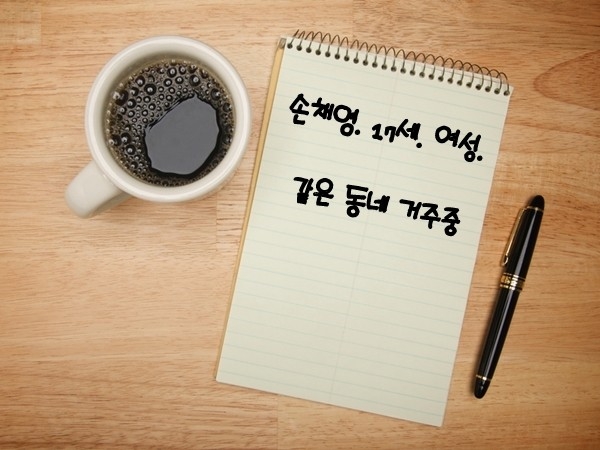 손채영. 17세. 여성.
같은 동네 거주중